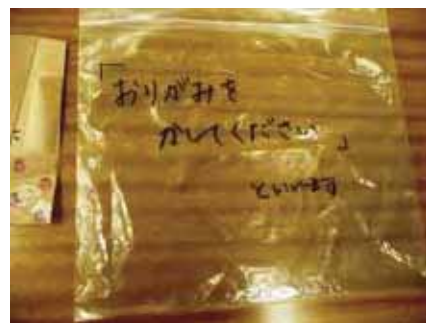 「おりがみを
かしてください」
といいます